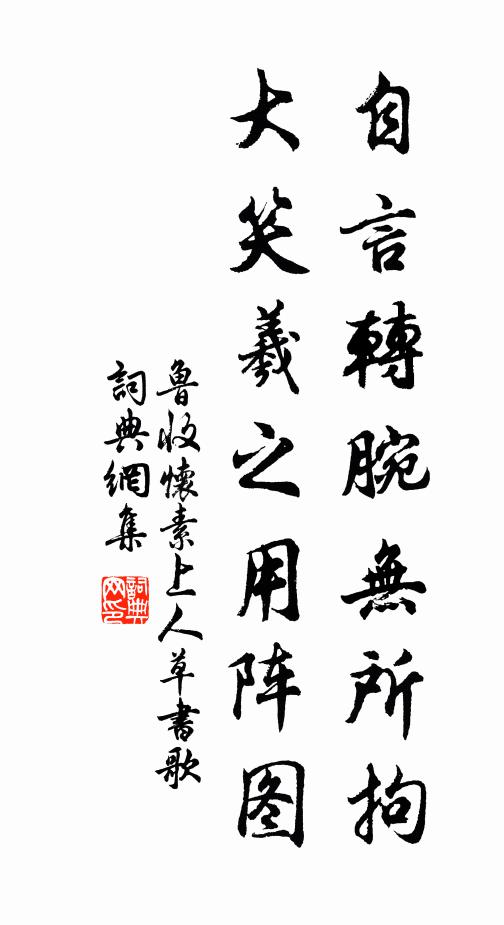 自言轉腕無所拘
大笑羲之用阵图
魯收懷素上人草書歌
詞典網集
詞典